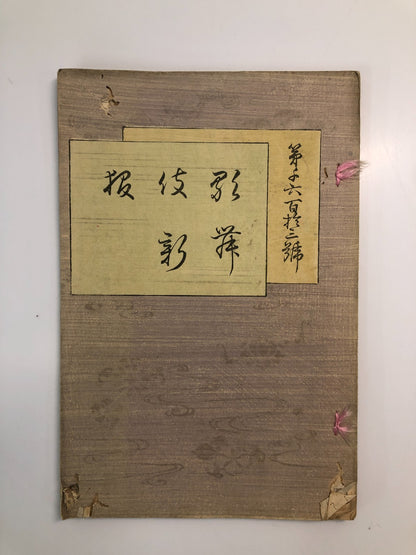 歌舞
伎新
報
第千六百拾二號